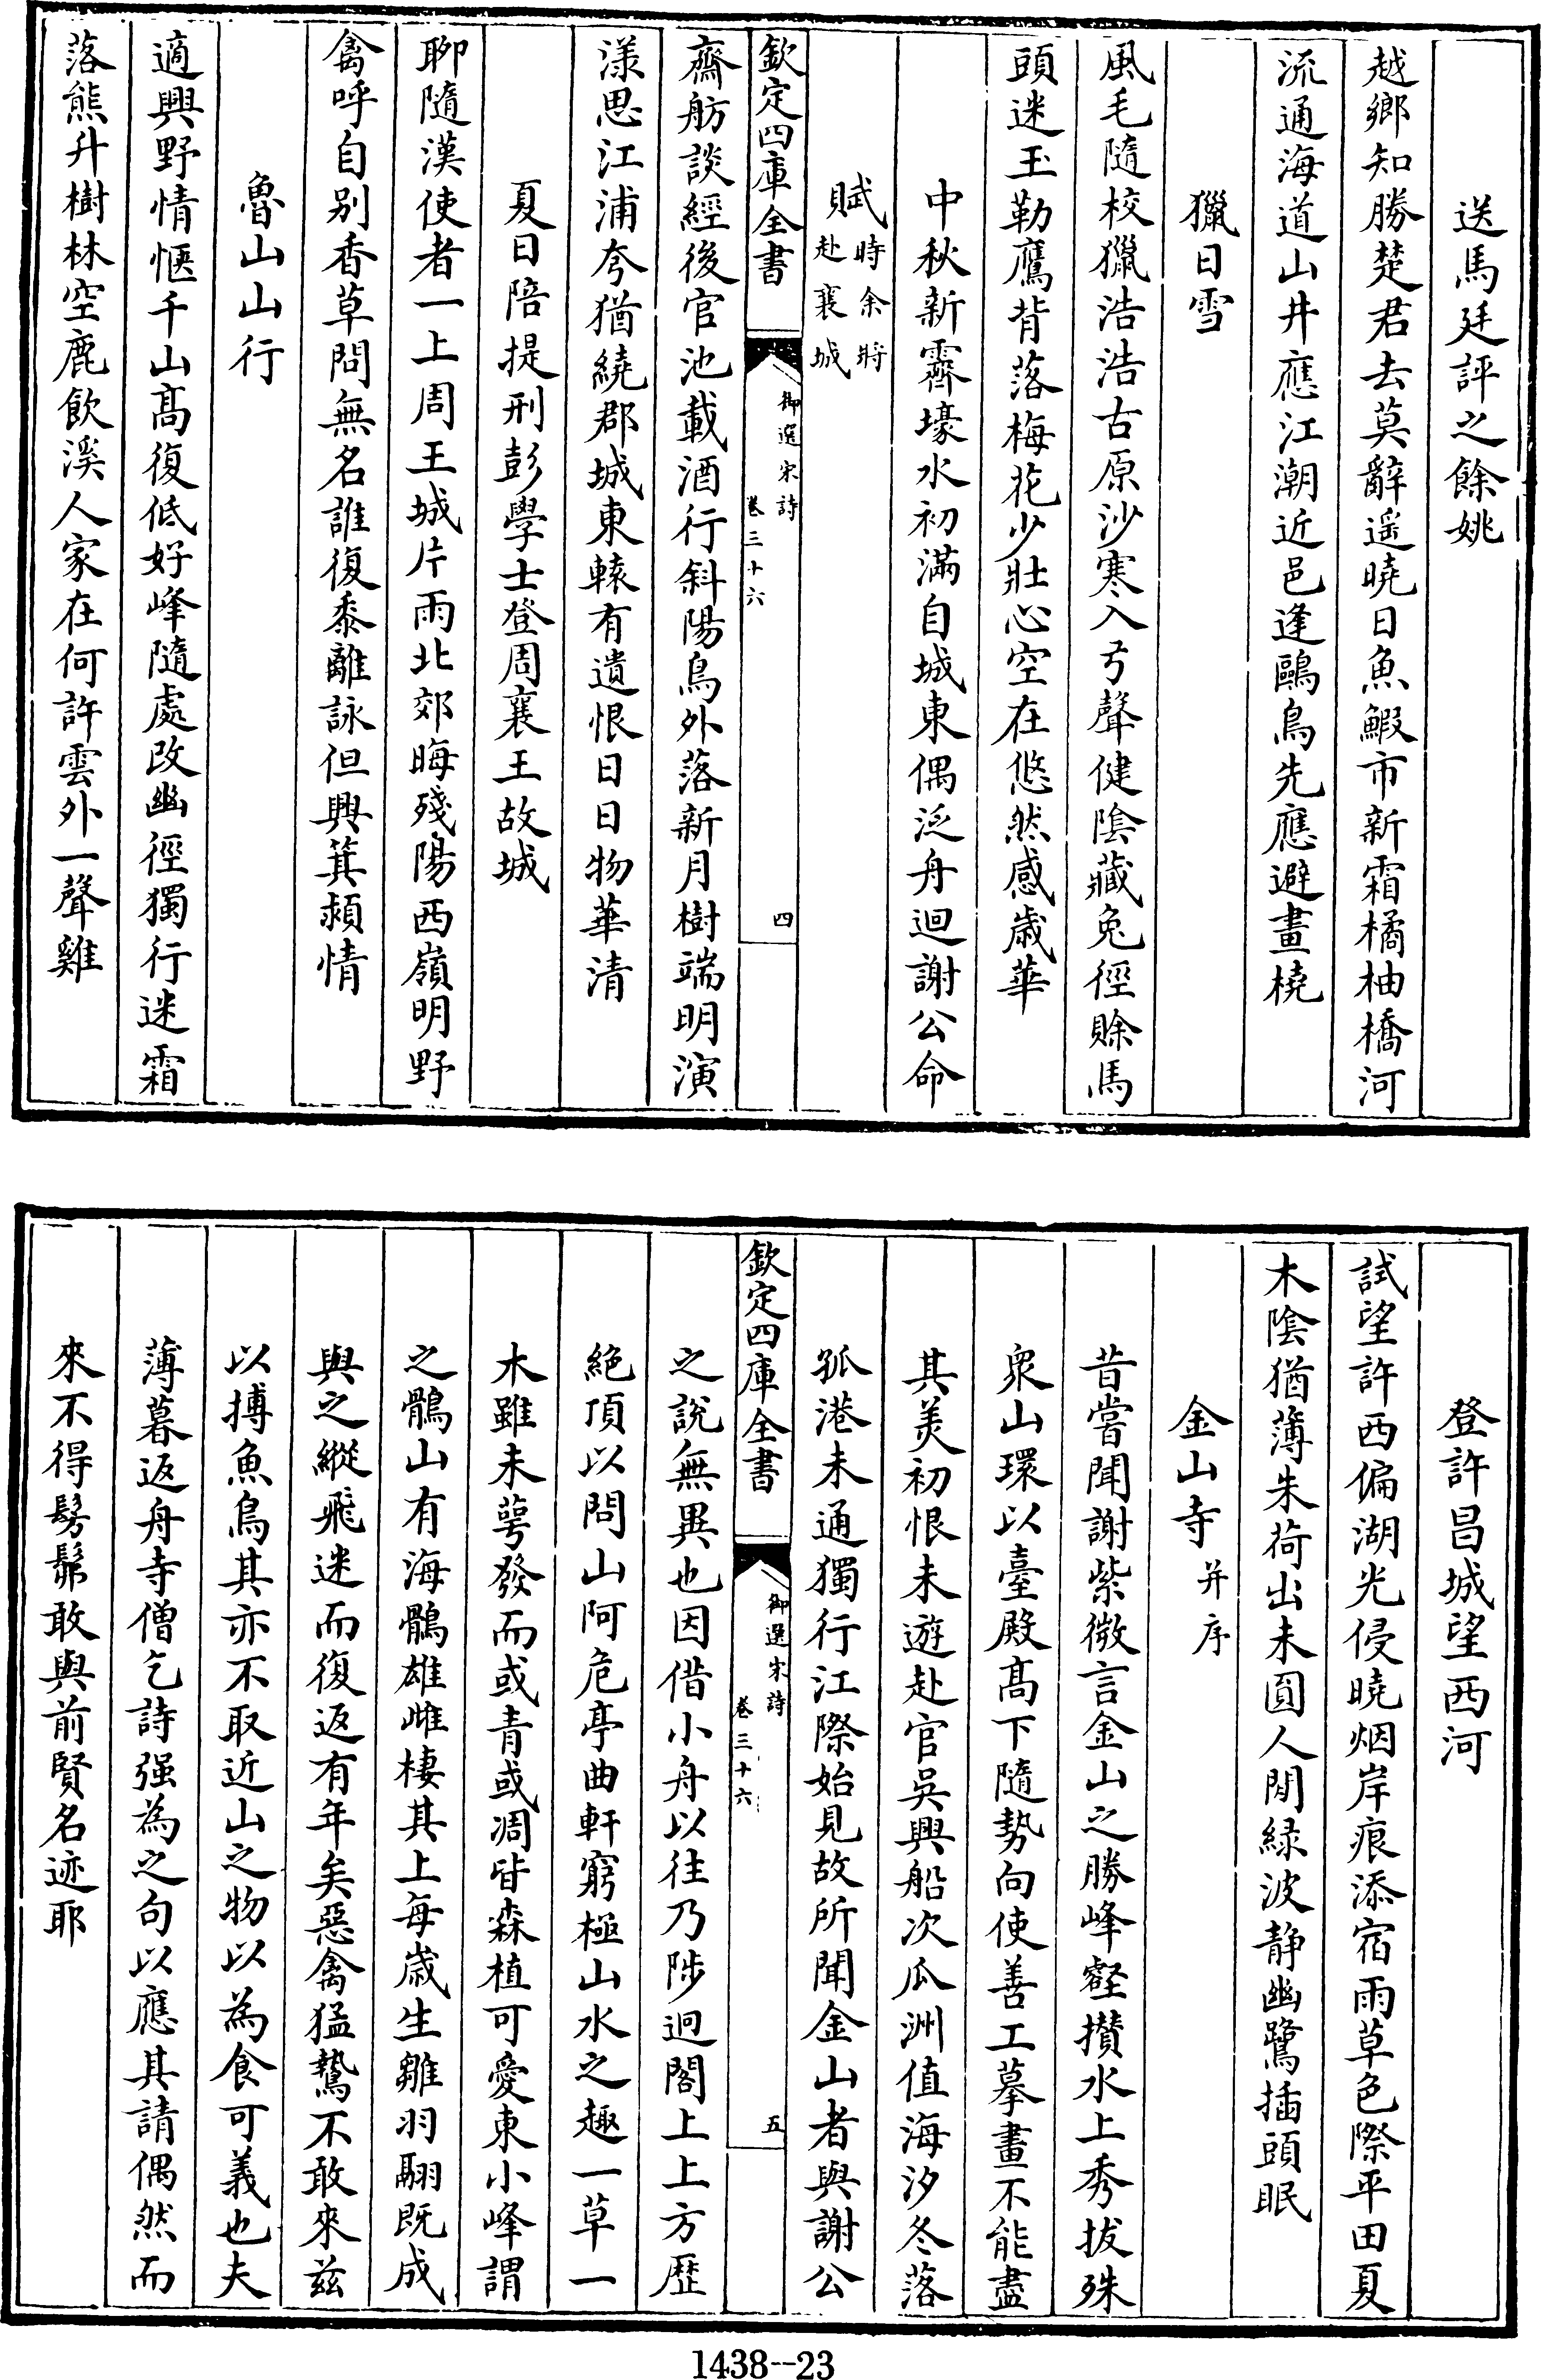 送馬廷評之餘姚
越鄉知勝楚君去莫辭遥曉日魚鰕市新霜橘柚橋河
流通海道山井應江潮近邑逢鷗鳥先應避畫橈
獵日雪
風毛隨校獵浩浩古原沙寒入弓聲健陰藏兔徑賒馬
頭迷玉勒鷹背落梅花少壯心空在悠然感歲華
中秋新霽壕水初滿自城東偶泛舟迴謝公命
賦時余將赴襄城
欽定四庫全書
御選宋詩
卷三十六
四
齋舫談經後官池載酒行斜陽鳥外落新月樹端明演
漾思江浦夸猶繞郡城東轅有遺恨日日物華清
夏日陪提刑彭學士登周襄王故城
聊隨漢使者一上周王城片雨北郊晦殘陽西嶺明野
禽呼自别香草問無名誰復黍離詠但興箕潁情
魯山山行
適興野情愜千山高復低好峰隨處改幽徑獨行迷霜
落熊升樹林空鹿飲溪人家在何許雲外一聲雞
登許昌城望西河
試望許西偏湖光侵曉烟岸痕添宿雨草色際平田夏
木陰猶薄朱荷出未圓人閒緑波静幽鷺插頭眠
金山寺并序
昔嘗聞謝紫微言金山之勝峰壑攅水上秀拔殊
衆山環以臺殿高下隨勢向使善工摹畫不能盡
其美初恨未遊赴官吳興船次瓜洲值海汐冬落
孤港未通獨行江際始見故所聞金山者與謝公
欽定四庫全書
御選宋詩
卷三十六
五
之說無異也因借小舟以往乃陟迴閣上上方歷
絶頂以問山阿危亭曲軒窮極山水之趣一草一
木雖未萼發而或青或凋皆森植可愛東小峰謂
之鶻山有海鶻雄雌棲其上每歲生雛羽翮既成
與之縱飛迷而復返有年矣惡禽猛鷙不敢來兹
以搏魚鳥其亦不取近山之物以為食可義也夫
薄暮返舟寺僧乞詩强為之句以應其請偶然而
來不得髣髴敢與前賢名迹耶
1438--23